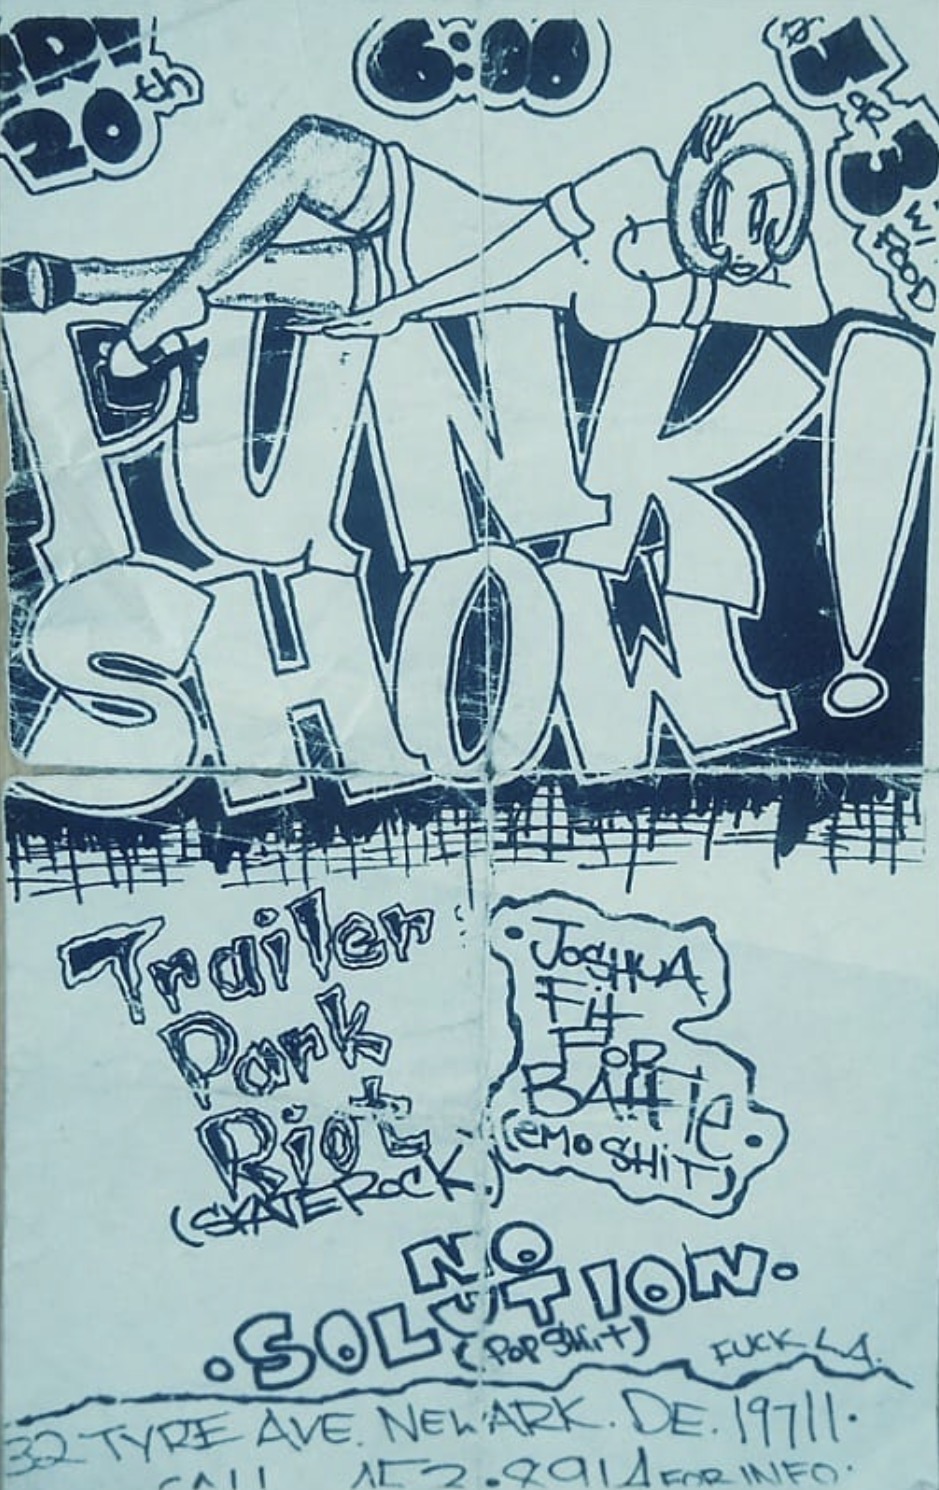 20th
6:00
$5
&
3
w/
FOOD
PUNK!
SHOW
Trailer
Park
Riot
(SKATEROCK)
JOSHUA
Fit
FOR
BAttle
(EMO SHiT)
NO
SOLUTION.
(POP SHit)
FUCK LA.
32 TYRE AVE. NEWARK. DE. 19711.
CALL FOR INFO.